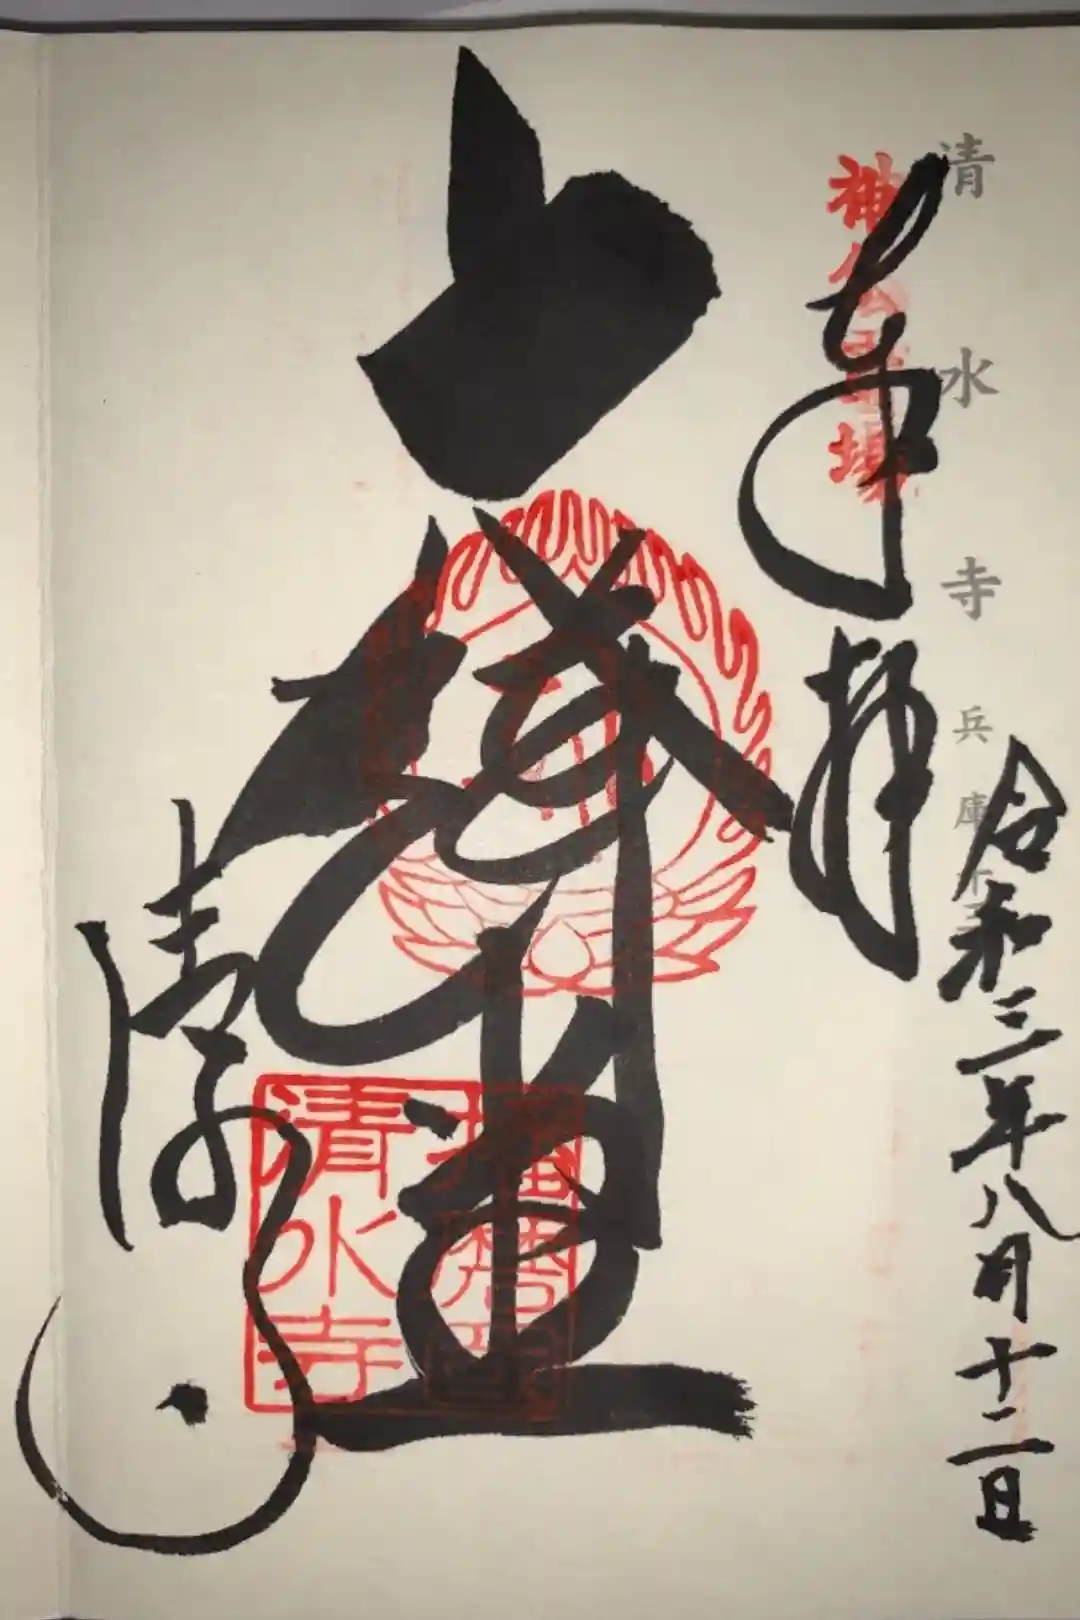 清水寺 兵庫
令和三年八月十二日
神仏霊場
奉拝
大講堂
播磨國
清水寺
清水寺